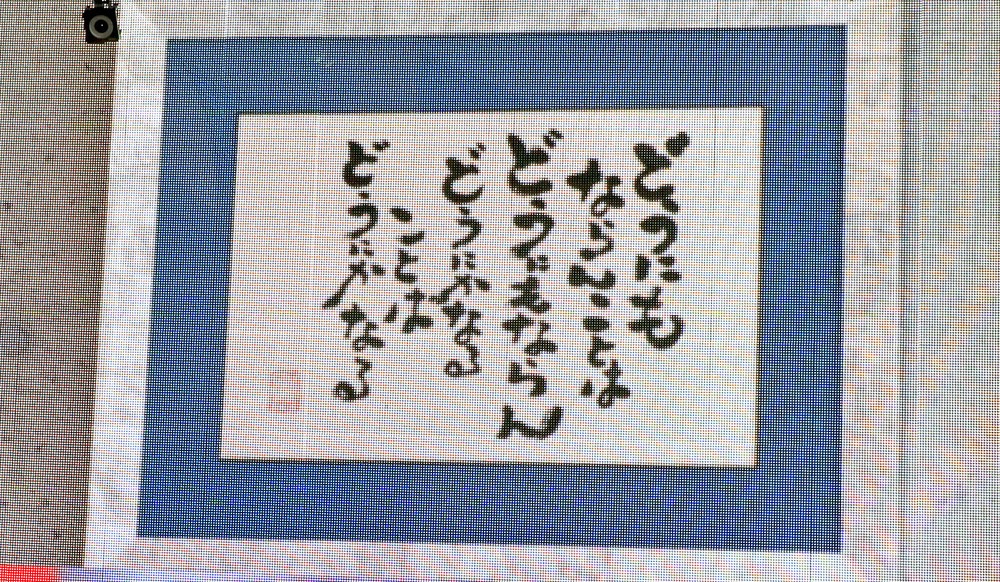 どうにも
ならんことは
どうにもならん
どうにかなる
ことは
どうにかなる